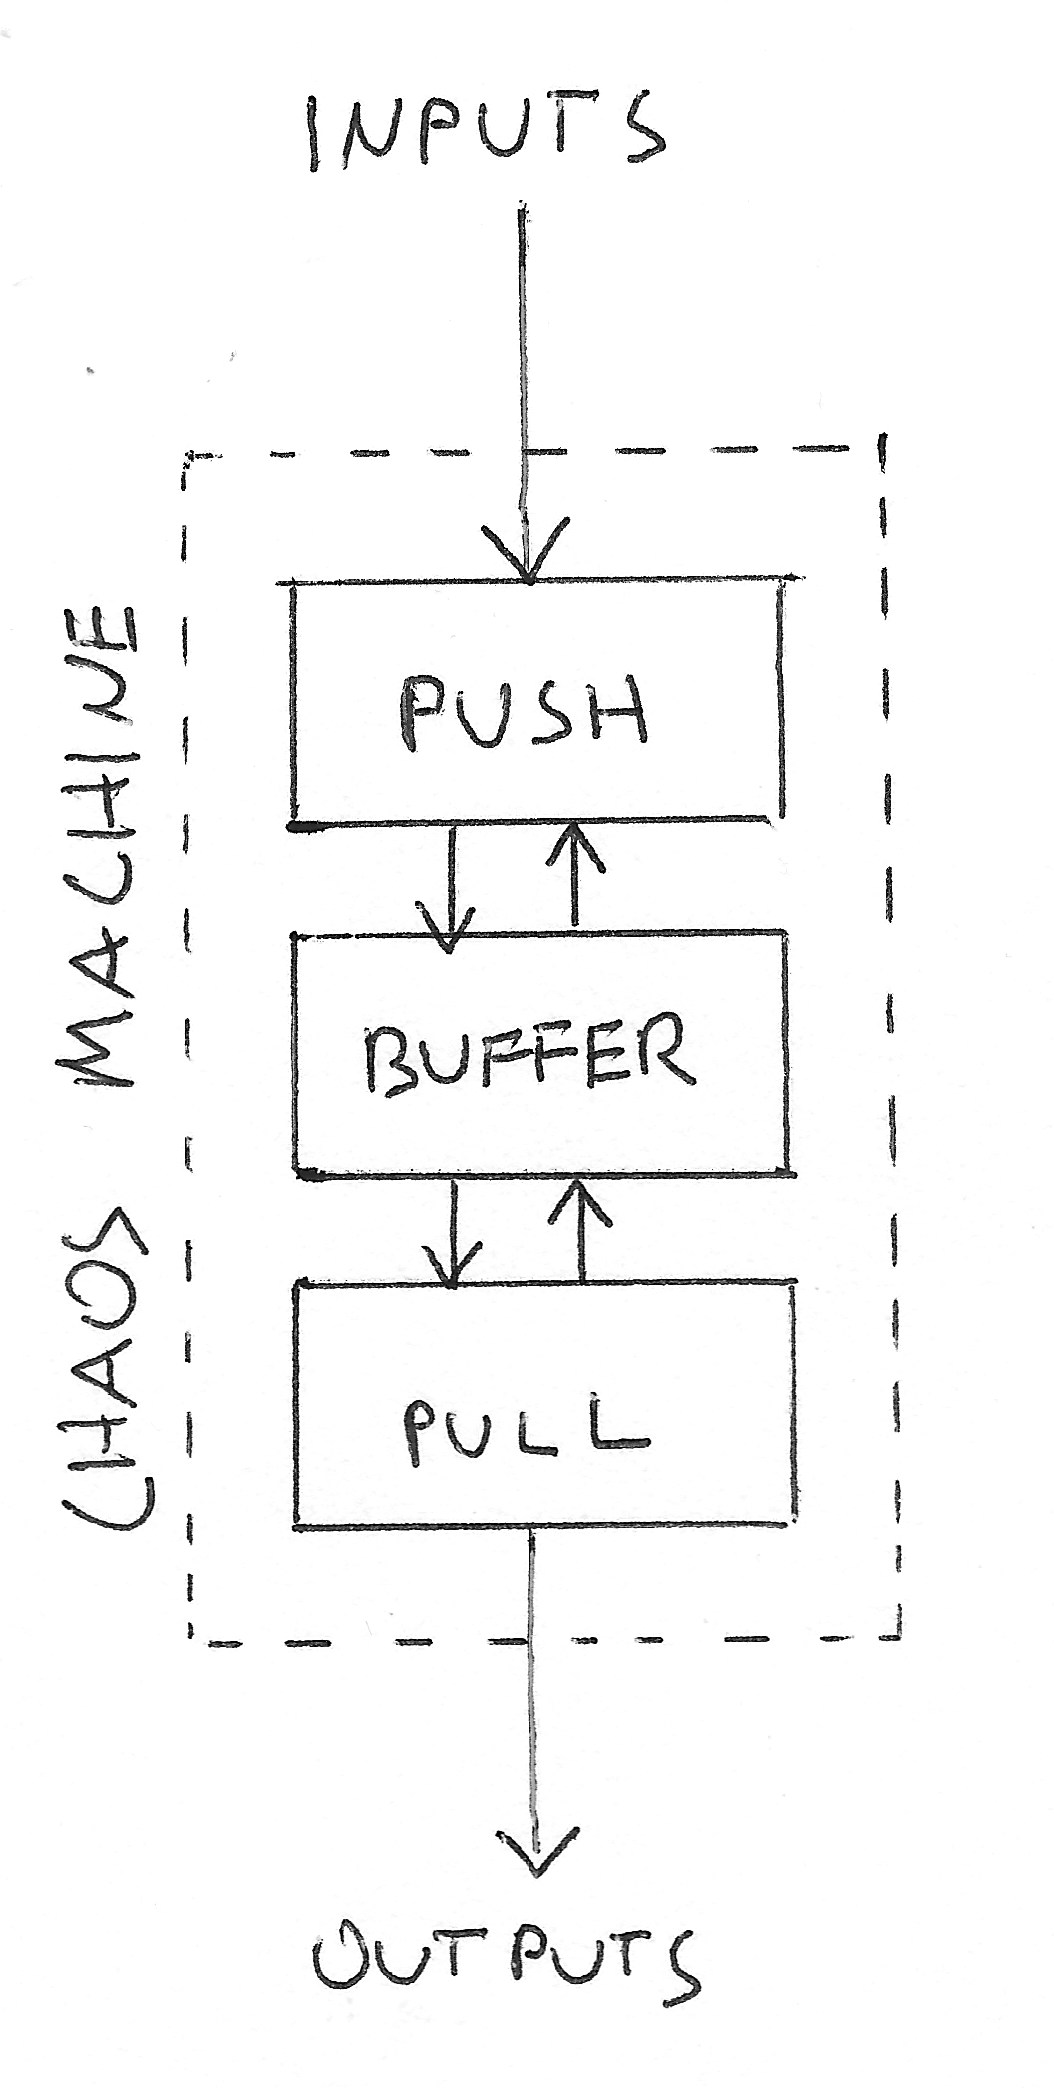 INPUTS
CHAOS MACHINE
PUSH
BUFFER
PULL
OUTPUTS